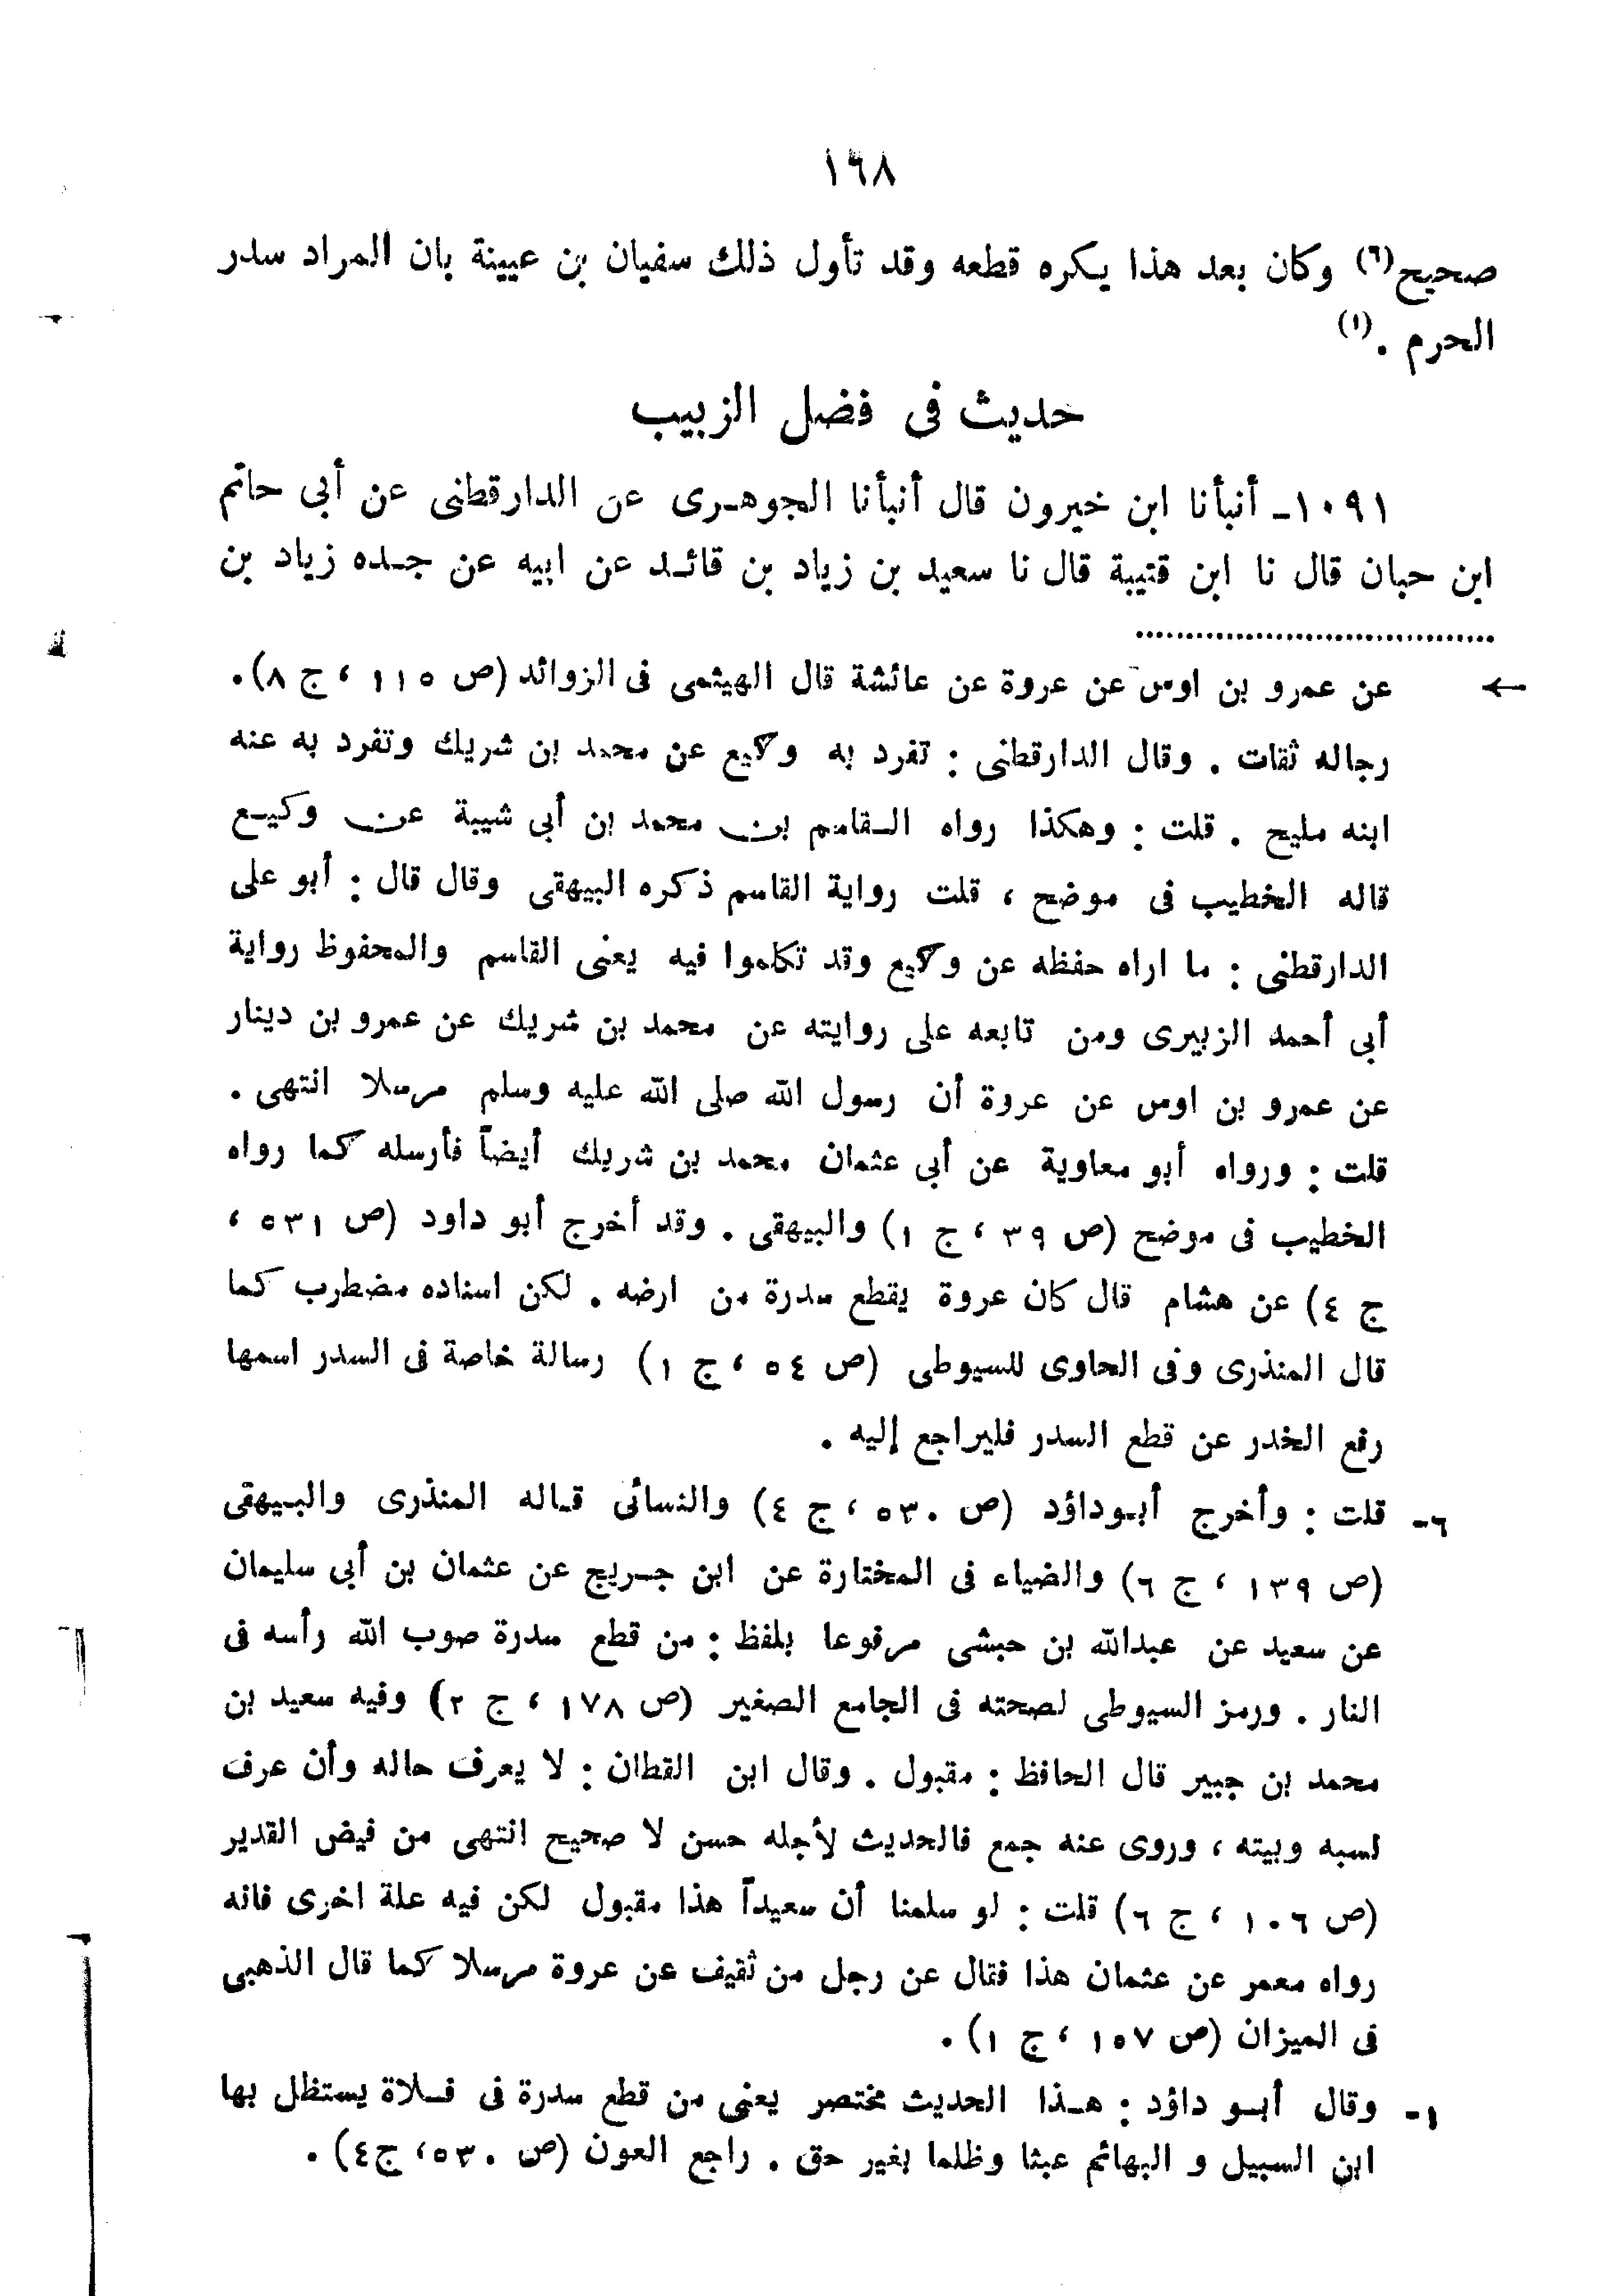 ١٦٨
صحيح(٦) وكان بعد هذا يكره قطعه وقد تأول ذلك سفيان بن عيينة بان المراد سدر
الحرم . (١)
حديث فى فضل الزبيب
١٠٩١ـ أنبأنا ابن خيرون قال أنبأنا الجوهرى عن الدارقطنى عن أبى حاتم
ابن حبان قال نا ابن قتيبة قال نا سعيد بن زياد بن قائد عن ابيه عن جده زياد بن
← عن عمرو بن اوس عن عروة عن عائشة قال الهيثمى فى الزوائد (ص ١١٥ ، ج ٨) .
رجاله ثقات . وقال الدارقطنى : تفرد به وكيع عن محمد بن شريك وتفرد به عنه
ابنه مليح . قلت : وهكذا رواه القاسم بن محمد بن أبى شيبة عن وكيع
قاله الخطيب فى موضح ، قلت رواية القاسم ذكره البيهقى وقال قال : أبو على
الدارقطنى : ما اراه حفظه عن وكيع وقد تكلموا فيه يعنى القاسم والمحفوظ رواية
أبى أحمد الزبيرى ومن تابعه على روايته عن محمد بن شريك عن عمرو بن دينار
عن عمرو بن اوس عن عروة أن رسول الله صلى الله عليه وسلم مرسلا انتهى .
قلت : ورواه أبو معاوية عن أبى عثمان محمد بن شريك أيضاً فأرسله كما رواه
الخطيب فى موضح (ص ٣٩ ، ج ١) والبيهقى . وقد أخرج أبو داود (ص ٥٣١ ،
ج ٤) عن هشام قال كان عروة يقطع سدرة من ارضه . لكن اسناده مضطرب كما
قال المنذرى وفى الحاوى للسيوطى (ص ٥٤ ، ج ١) رسالة خاصة فى السدر اسمها
رفع الخدر عن قطع السدر فليراجع إليه .
٦ـ قلت : وأخرج أبوداؤد (ص ٥٣٠ ، ج ٤) والنسائى قاله المنذرى والبيهقى
(ص ١٣٩ ، ج ٦) والضياء فى المختارة عن ابن جريج عن عثمان بن أبى سليمان
عن سعيد عن عبدالله بن حبشى مرفوعا بلفظ : من قطع سدرة صوب الله رأسه فى
النار . ورمز السيوطى لصحته فى الجامع الصغير (ص ١٧٨ ، ج ٢) وفيه سعيد بن
محمد بن جبير قال الحافظ : مقبول . وقال ابن القطان : لا يعرف حاله وأن عرف
نسبه وبيته ، وروى عنه جمع فالحديث لأجله حسن لا صحيح انتهى من فيض القدير
(ص ١٠٦ ، ج ٦) قلت : لو سلمنا أن سعيداً هذا مقبول لكن فيه علة اخرى فانه
رواه معمر عن عثمان هذا فقال عن رجل من ثقيف عن عروة مرسلا كما قال الذهبى
فى الميزان (ص ١٥٧ ، ج ١) .
١ـ وقال أبو داؤد : هذا الحديث مختصر يعنى من قطع سدرة فى فلاة يستظل بها
ابن السبيل و البهائم عبثا وظلما بغير حق . راجع العون (ص ٥٣٠، ج٤) .